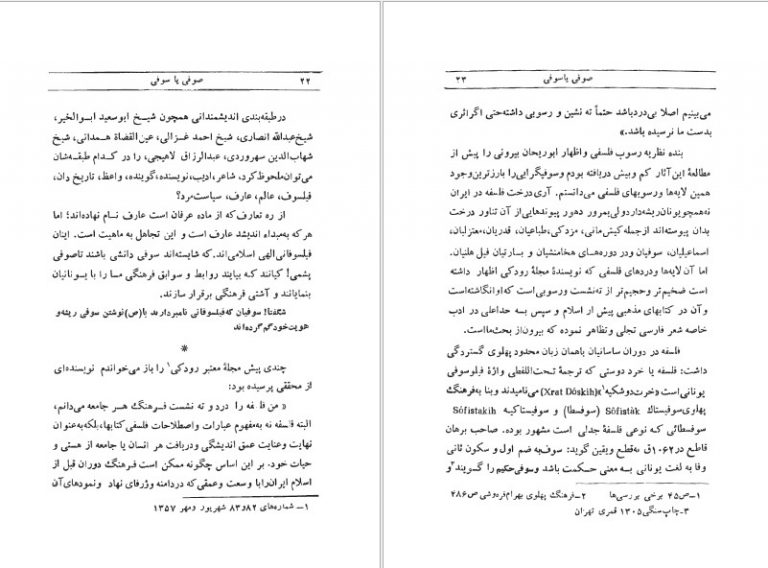 ۲۲ صوفی یا سوفی
درطبقه‌بندی اندیشمندانی همچون شیخ ابوسعید ابوالخیر،
شیخ‌عبداللّه انصاری، شیخ احمد غزالی، عین‌القضاة همدانی، شیخ
شهاب‌الدین سهروردی، عبدالرزاق لاهیجی، را در کدام طبقه‌شان
می‌توان‌ملحوظ‌کرد، شاعر، ادیب، نویسنده، گوینده، واعظ، تاریخ دان،
فیلسوف، عالم، عارف، سیاست‌مرد؟
از ره تعارف‌که از ماده عرفان است عارف نام نهاده‌اند؛ اما
هرکه به‌مبداء اندیشد عارف است و این تجاهل به ماهیت است. اینان
فیلسوفانی الهی اسلامی‌اند. که شایسته‌اند سوفی دانشی باشند تاصوفی
پشمی! کیانند که بیایند روابط و سوابق فرهنگی ما را با یونانیان
بنمایانند و آشتی فرهنگی برقرار سازند.
شگفتا! سوفیان که فیلسوفانی نامبردارند با(ص)نوشتن سوفی ریشه‌و
هویت‌خودگم‌کرده‌اند
*
چندی پیش مجلهٔ معتبر رودکی۱ را باز می‌خواندم نویسنده‌ای
از محققی پرسیده بود:
« من فلسفه را درد و ته نشست فرهنگ هر جامعه می‌دانم،
البته فلسفه نه به‌مفهوم عبارات و اصطلاحات فلسفی کتابها، بلکه‌به‌عنوان
نهایت وغنایت عمق اندیشگی‌ودریافت هر انسان یا جامعه از هستی و
حیات خود. بر این اساس چگونه ممکن است فرهنگ دوران قبل از
اسلام ایران‌رابا وسعت وعمقی که‌دردامنه وژرفای نهاد ونمودهای‌آن
۱– شماره‌های ۸۲و۸۳ شهریور ومهر ۱۳۵۷
صوفی یاسوفی ۲۳
می‌بینیم اصلا بی‌دردباشد حتماً ته نشین و رسوبی داشته‌حتی اگراثری
بدست ما نرسیده باشد.»
بنده نظربه رسوب فلسفی واظهار ابوریحان بیرونی را پیش از
مطالعهٔ این‌آثار کم وبیش دریافته بودم وسوفیگرایی‌را بارزترین‌وجود
همین لایه‌ها ورسوبهای فلسفی می‌دانستم. آری‌درخت فلسفه در ایران
نه‌همچویونان‌ریشه‌داردولی‌بمرور دهور پیوندهایی از آن تناور درخت
بدان پیوسته‌اند ازجمله‌کیش‌مانی، مزدکی، طباعیان، قدریان، معتزلیان،
اسماعیلیان، سوفیان ودر دوره‌های هخامنشیان و پارتیان فیل هلنیان.
اما آن لایه‌ها ودردهای فلسفی که نویسندهٔ مجلهٔ رودکی اظهار داشته
است ضخیم‌تر وحجیم‌تر از ته‌نشست ورسوبی است که‌اوانگاشته‌است
وآن در کتابهای مذهبی پیش از اسلام و سپس به حداعلی در ادب
خاصه شعر فارسی تجلی وتظاهر نموده که بیرون‌از بحث‌مااست.
فلسفه در دوران ساسانیان باهمان زبان محدود پهلوی گستردگی
داشت: فلسفه یا خرد دوستی که ترجمهٔ تحت‌اللفظی واژهٔ فیلوسوفی
یونانی‌است «خرت‌دوشکیه۱»(Xrat Dōskih) می‌نامیدند وبنا به‌فرهنگ
پهلوی‌سوفیستاك Sōfistāk (سوفسطا) و سوفیستاکیه Sōfistakih
سوفسطائی که نوعی فلسفهٔ جدلی است مشهور بوده. صاحب برهان
قاطع در۱۰۶۲ق به‌قطع ویقین گوید: سوف‌به ضم اول و سکون ثانی
وفا به لغت یونانی به معنی حکمت باشد وسوفی‌حکیم را گویند۳و
۱–ص۴۵ برخی بررسی‌ها ۲–فرهنگ پهلوی بهرام‌فره‌وشی ص۴۸۶
۳–چاپ‌سنگی۱۳۰۵ قمری تهران